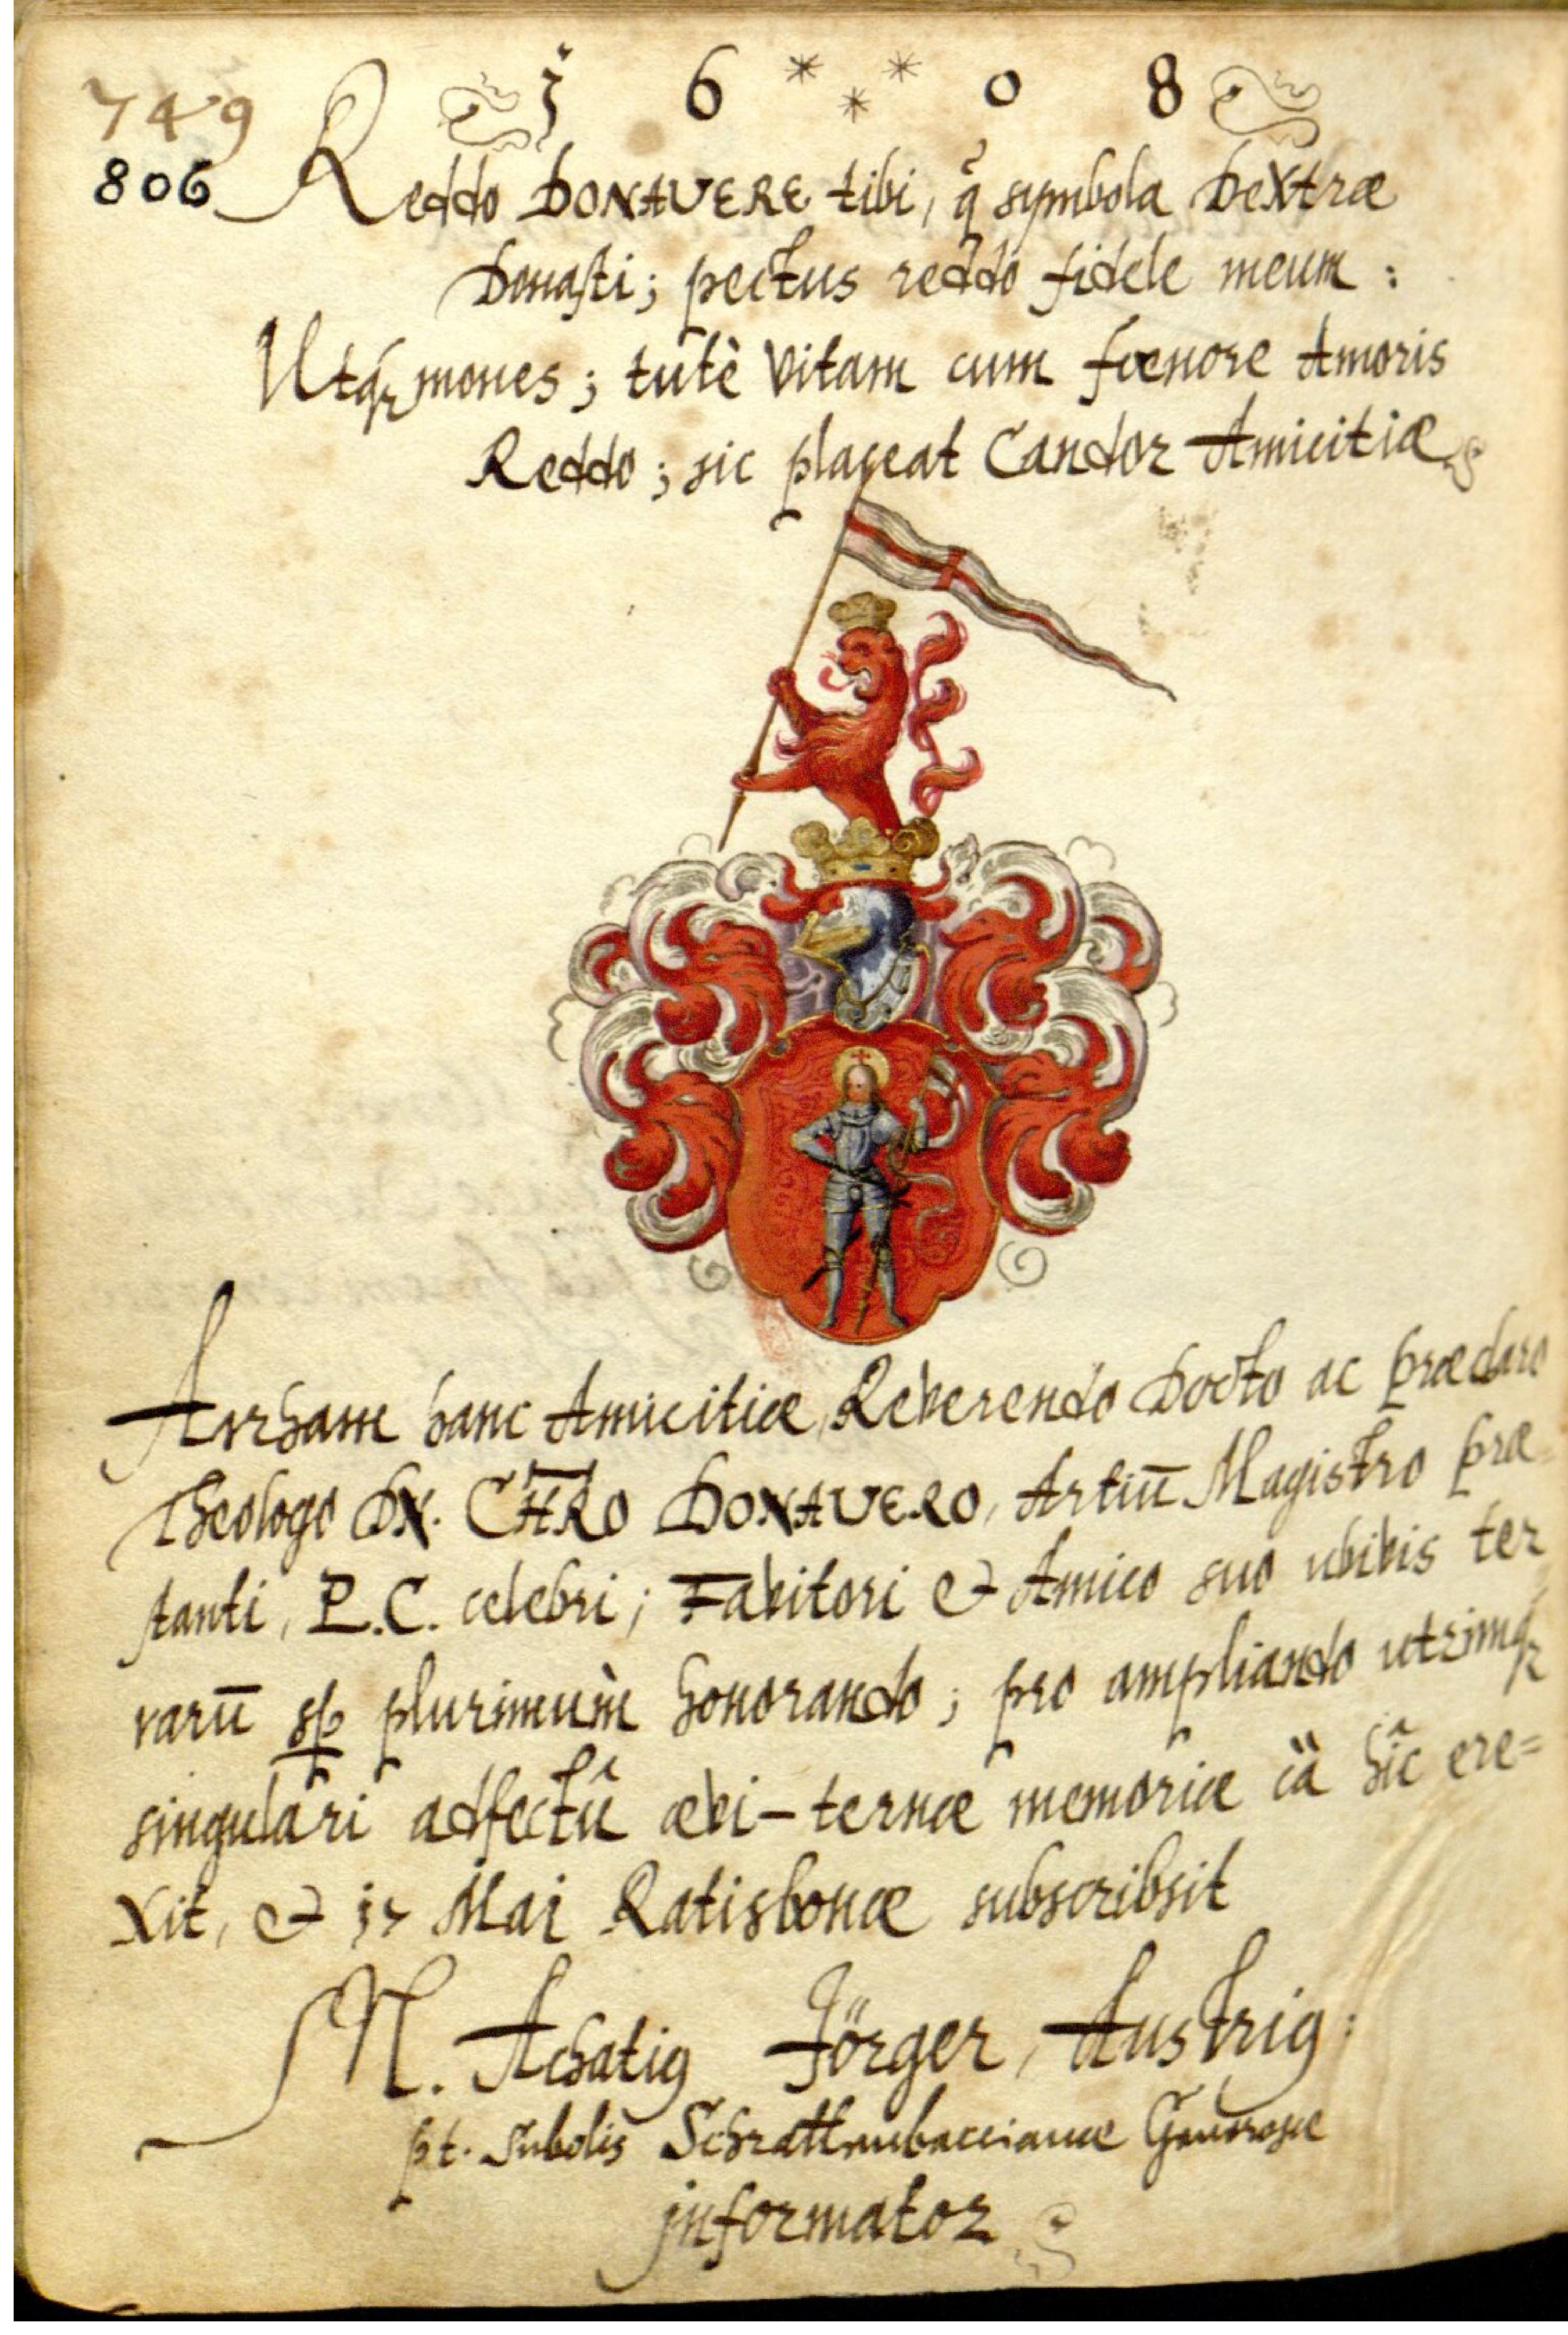 1 6 * * * 0 8
749
806 Reddo DONAVERE tibi, q̃ symbola Dextræ
Donasti; pectus reddo fidele meum:
Utq₃ mones; tutè Vitam cum fœnore Amoris
Reddo; sic placeat Candor Amicitiæ
Arrham hanc Amicitiæ, Reverendo Docto ac præclaro
Theologo DN. CHRO DONAVERO, Artiū Magistro præ
stanti, P.C. celebri; Favitori & Amico suo ubivis ter
rarū plurimùm honorando; pro ampliando utrimq₃
singulari adfectû ævi-ternæ memoriæ cä hîc ere=
xit, & Mai Ratisbonæ subscribsit
M. Achatiꝰ Jörger, Austriꝰ
pt. Subolis Generosæ
jnformator